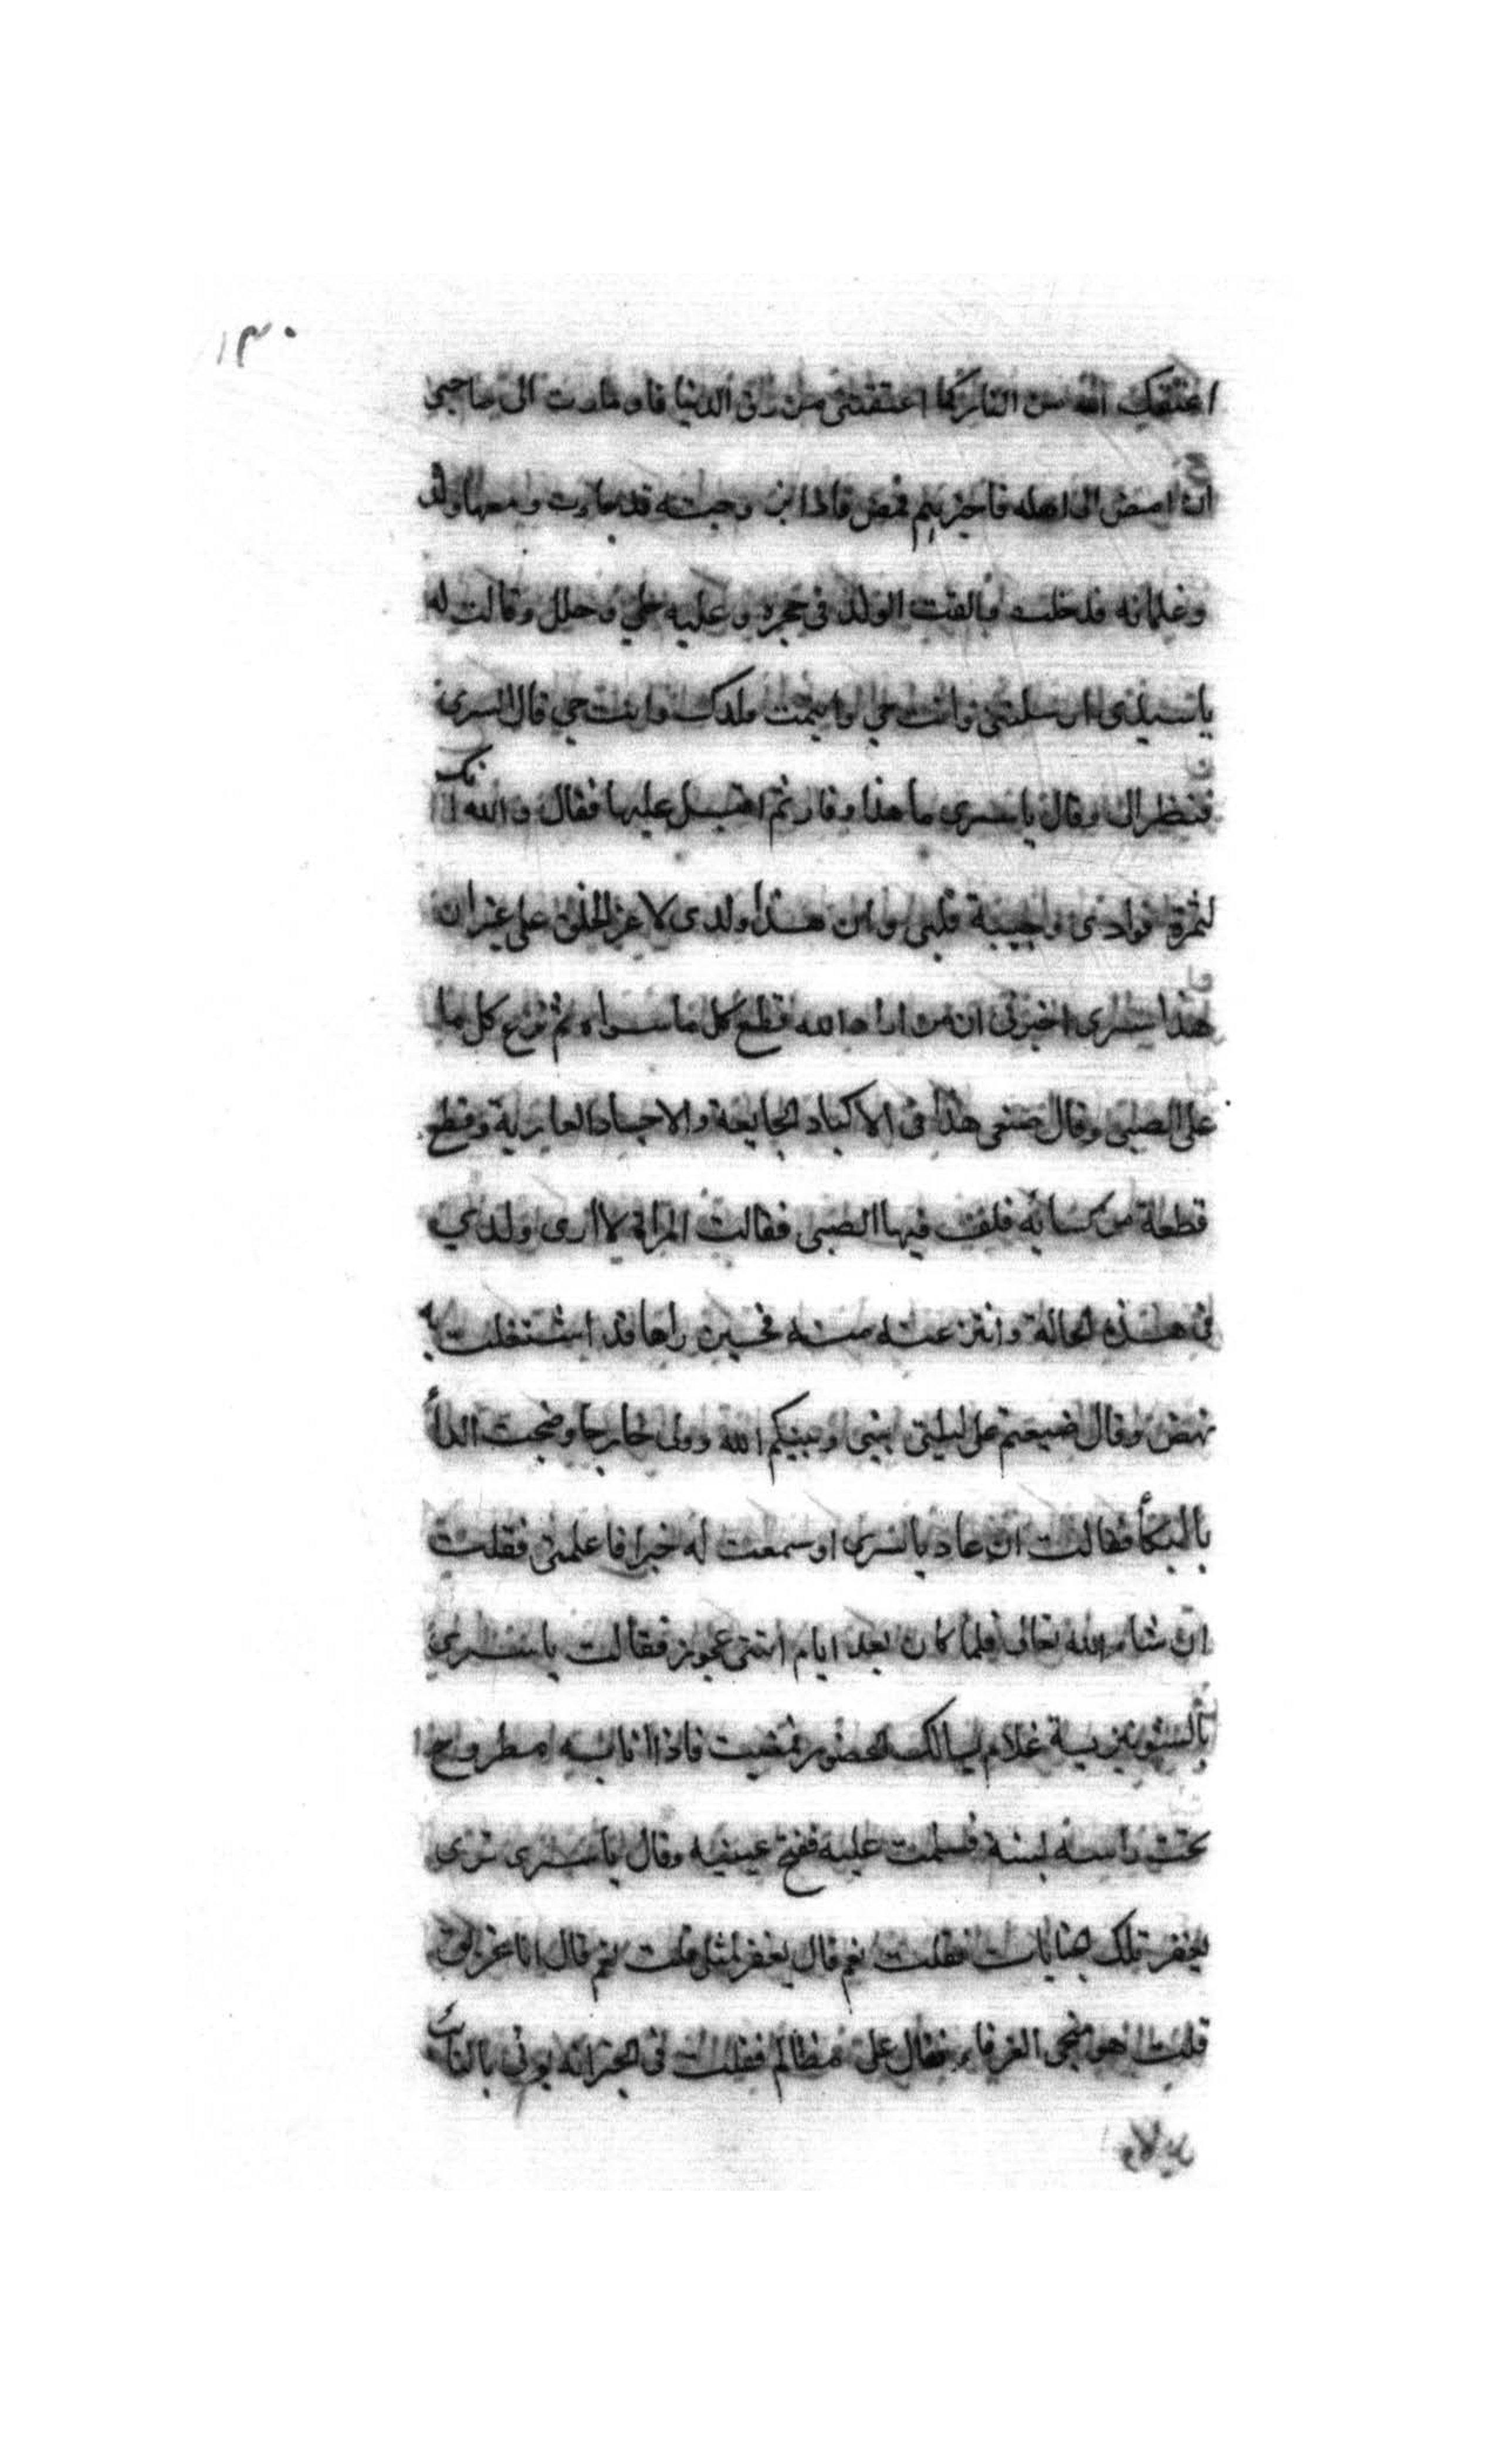 ١٣٠
اعتقك الله من النار كما اعتقتنى من رق الدنيا فاومات الى صاحبى
ان امض الى اهله فاخبرهم فمض فاذا زوجته قد جاءت ومعها ولد
وغلمانه فدخلت فالقت الولد فى حجره وعليه حلي وحلل وقالت له
يا سيدى ارملتنى وانت حي وايتمت ولدك وانت حي قال السرى
فنظر الى وقال يا سرى ما هذا وفا ثم اقبل عليها فقال والله انك
لثمرة فوادى وحبيبة قلبى وان هذا ولدى لاعز الخلق على غير ان
هذا سرى اخبرنى ان من اراد الله قطع كل ما سواه ثم نزع كل ما
على الصبى وقال ضعى هذا فى الاكباد الجايعة والاجساد العارية وقطع
قطعة من كسائه فلف فيها الصبى فقالت المراة لا ارى ولدي
فى هذه الحالة وانتزعته منه فحين راها قد اشتغلت به
نهض وقال ضيعتم على ليلتى بينى وبينكم الله وولى خارجا وضجت الدا
بالبكا فقالت ان عاد يا سرى او سمعت له خبرا فاعلمنى فقلت
ان شاء الله تعالى فلما كان بعد ايام اتتنى عجوز فقالت يا سري
بالشونيزية غلام يسالك الحضور فمضيت فاذا انا به مطروح
تحت راسه لبنة فسلمت عليه ففتح عينيه وقال يا سرى ترى
يغفر تلك الجنايات فقلت نعم قال يغفر لمثلى قلت نعم قال انا غريق
قلت هو منجى الغرقاء فقال على مظالم فقلت فى الخبر انه يوتى بالتائب